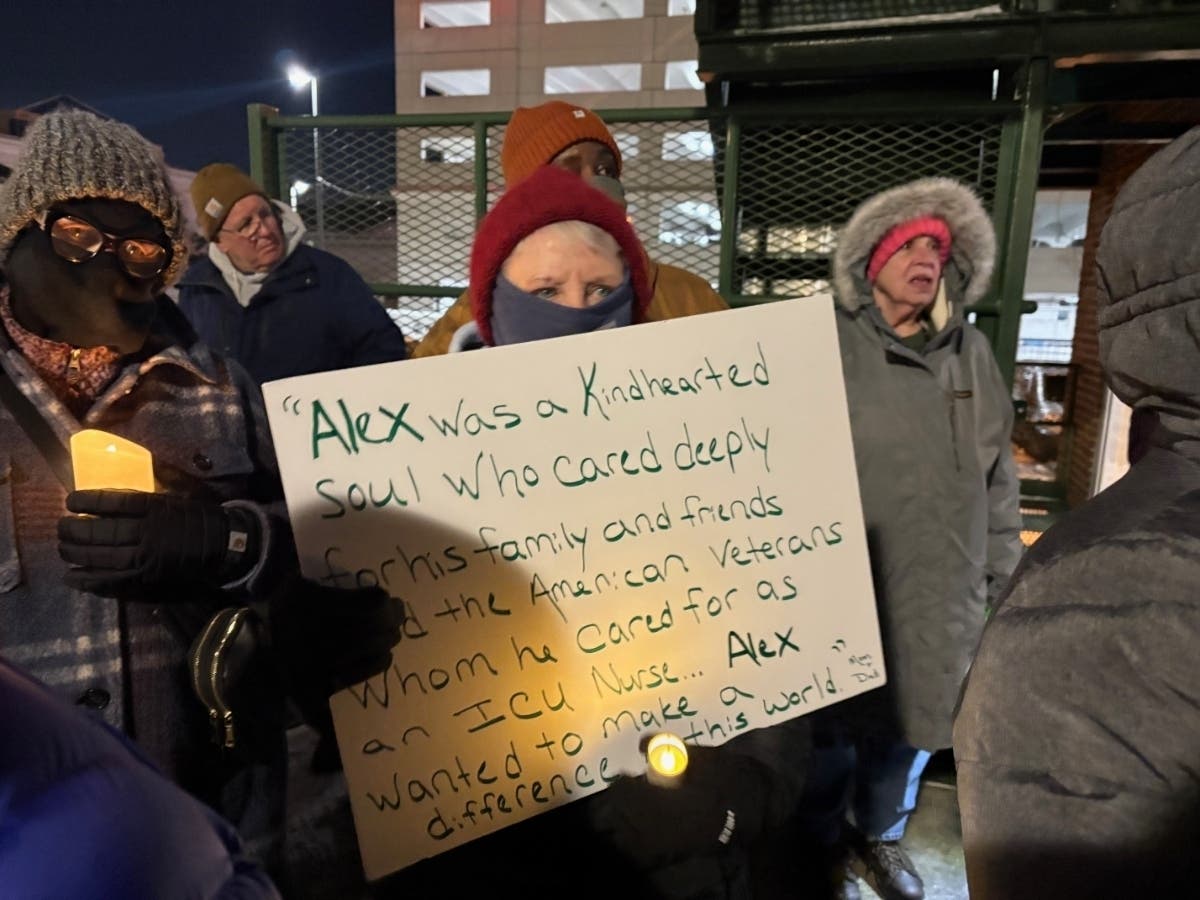 "Alex was a Kindhearted
soul who cared deeply
for his family and friends
d the American Veterans
whom he cared for as
an ICU Nurse... Alex
wanted to make a
difference this world."
Mom
Dad